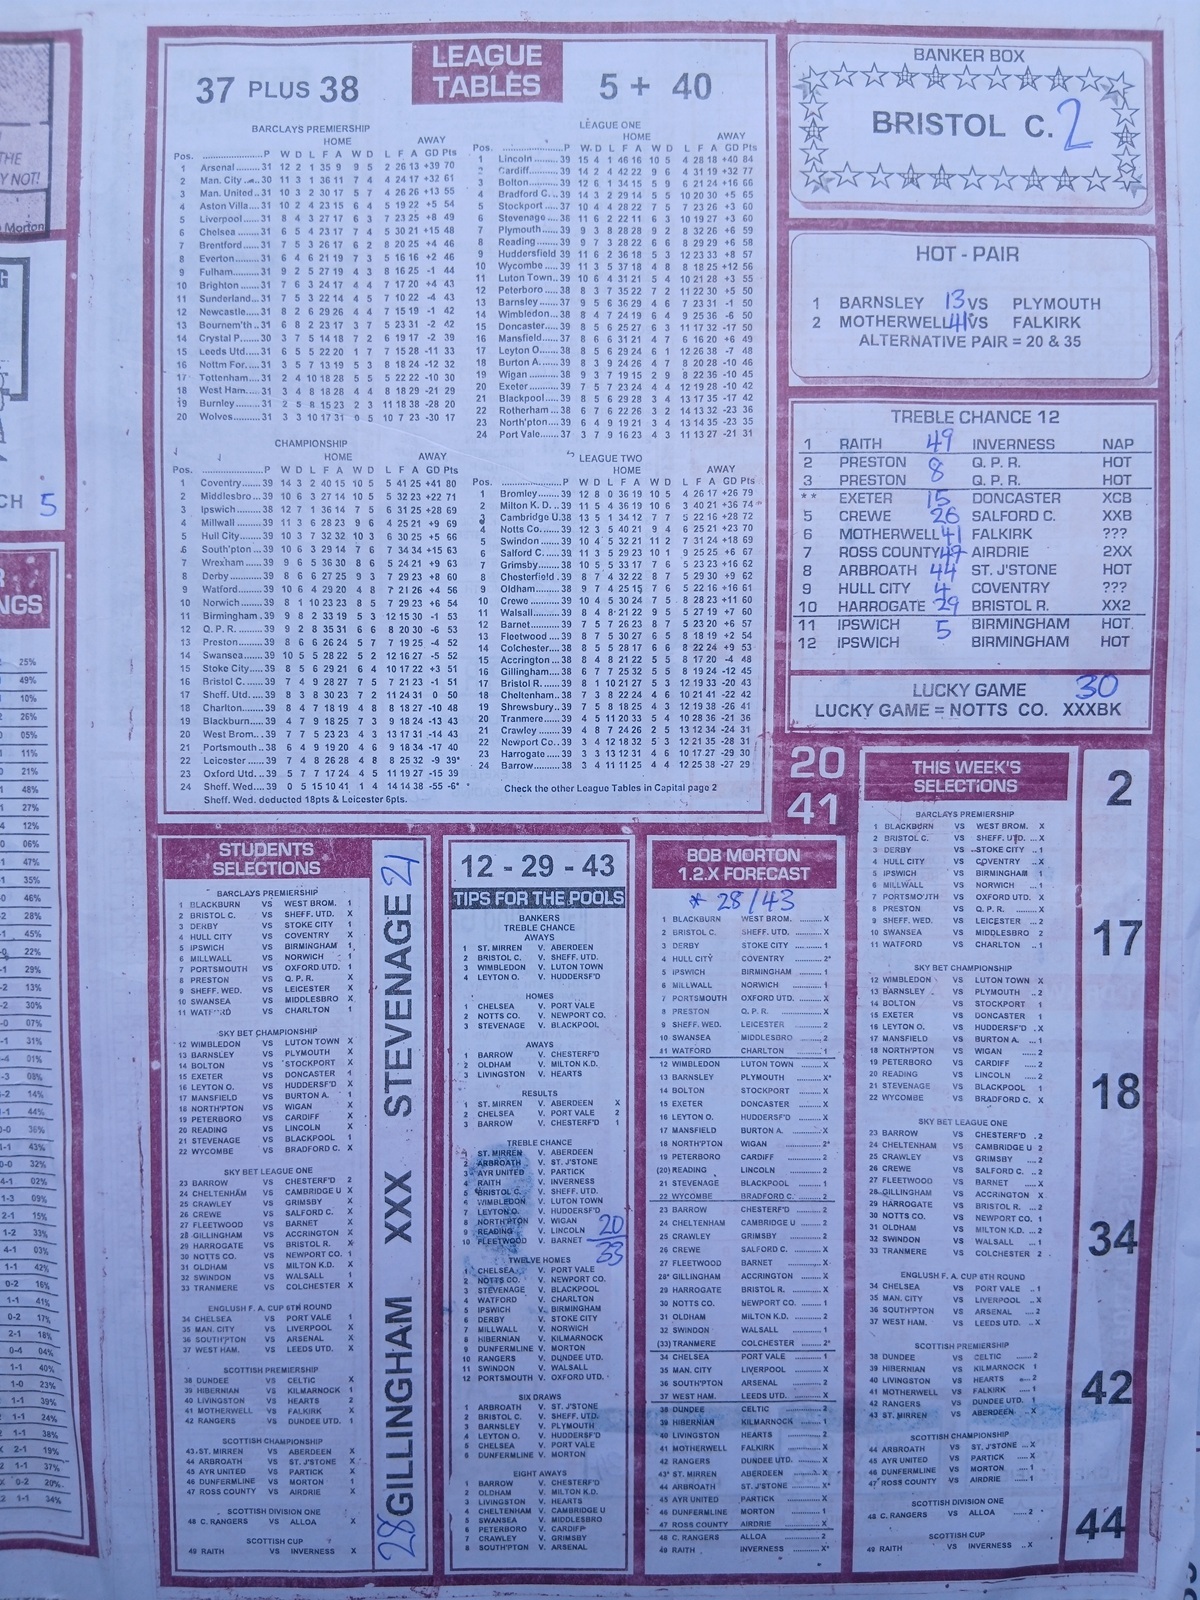 THE
Y NOT!
Morton
CH 5
NGS
37 PLUS 38
LEAGUE TABLES
5 + 40
BARCLAYS PREMIERSHIP
HOME AWAY
Pos. P W D L F A W D L F A GD Pts
1 Arsenal 31 12 2 1 35 9 9 5 2 26 13 +39 70
2 Man. City 30 11 3 1 36 11 7 4 4 24 17 +32 61
3 Man. United 31 10 3 2 30 17 5 7 4 26 26 +13 55
4 Aston Villa 31 10 2 4 23 15 6 4 5 19 22 +5 54
5 Liverpool 31 8 4 3 27 17 6 3 7 23 25 +8 49
6 Chelsea 31 6 5 4 23 17 7 4 5 30 21 +15 48
7 Brentford 31 7 5 3 26 17 6 2 8 20 25 +4 46
8 Everton 31 6 4 6 21 19 7 3 5 16 16 +2 46
9 Fulham 31 9 2 5 27 19 4 3 8 16 25 -1 44
10 Brighton 31 7 6 3 24 17 4 4 7 17 20 +4 43
11 Sunderland 31 7 5 3 22 14 4 5 7 10 22 -4 43
12 Newcastle 31 8 2 6 29 26 4 4 7 15 19 -1 42
13 Bournem'th 31 6 8 2 23 17 3 7 5 23 31 -2 42
14 Crystal P. 30 3 7 5 14 18 7 2 6 19 17 -2 39
15 Leeds Utd. 31 6 5 5 22 20 1 7 7 15 28 -11 33
16 Nottm For. 31 3 5 7 13 19 5 3 8 18 24 -12 32
17 Tottenham 31 2 4 10 18 28 5 5 5 22 22 -10 30
18 West Ham 31 3 4 8 18 28 4 4 8 18 29 -21 29
19 Burnley 31 2 5 8 15 23 2 3 11 18 38 -28 20
20 Wolves 31 3 3 10 17 31 0 5 10 7 23 -30 17
LEAGUE ONE
HOME AWAY
P W D L F A W D L F A GD Pts
1 Lincoln 39 15 4 1 46 16 10 5 4 28 18 +40 84
2 Cardiff 39 14 2 4 42 22 9 6 4 31 19 +32 77
3 Bolton 39 12 6 1 34 15 5 9 6 21 24 +16 66
4 Bradford C. 39 14 3 2 29 14 5 5 10 20 30 +5 65
5 Stockport 37 10 4 4 28 22 7 5 7 23 26 +3 60
6 Stevenage 38 11 6 2 22 11 6 3 10 19 27 +3 60
7 Plymouth 39 9 3 8 28 28 9 2 8 32 26 +6 59
8 Reading 39 9 7 3 28 22 6 6 8 29 29 +6 58
9 Huddersfield 39 11 6 2 36 18 5 3 12 23 33 +8 57
10 Wycombe 39 11 3 5 37 18 4 8 8 18 25 +12 56
11 Luton Town 39 10 6 4 31 21 5 4 10 21 28 +3 55
12 Peterboro 38 8 3 7 35 22 7 2 11 22 30 +5 50
13 Barnsley 37 9 5 6 36 29 4 6 7 23 31 -1 50
14 Wimbledon 38 8 4 7 24 19 6 4 9 25 36 -6 50
15 Doncaster 39 8 5 6 25 27 6 3 11 17 32 -17 50
16 Mansfield 37 8 6 6 31 21 4 7 6 16 20 +6 49
17 Leyton O. 38 8 5 6 29 24 6 1 12 26 38 -7 48
18 Burton A. 38 3 8 9 24 26 4 7 8 20 28 -10 46
19 Wigan 38 9 3 7 19 15 2 9 8 22 36 -10 45
20 Exeter 38 7 5 7 23 24 4 4 12 19 28 -10 42
21 Blackpool 39 8 6 5 28 21 3 3 13 17 35 -17 42
22 Rotherham 38 6 7 6 22 26 3 2 14 13 32 -23 36
23 North'pton 39 6 4 9 19 21 3 4 13 14 35 -23 35
24 Port Vale 37 3 7 9 16 23 4 3 11 13 27 -21 31
CHAMPIONSHIP
HOME AWAY
Pos. P W D L F A W D L F A GD Pts
1 Coventry 39 14 3 2 40 15 10 5 5 41 25 +41 80
2 Middlesbro 39 10 6 3 27 14 10 5 5 32 23 +22 71
3 Ipswich 38 12 7 1 36 14 7 5 6 31 25 +28 69
4 Millwall 39 11 3 6 28 23 9 6 4 25 21 +9 69
5 Hull City 39 10 3 7 32 32 10 3 6 30 25 +5 66
6 South'pton 39 10 6 3 29 14 7 6 7 34 34 +15 63
7 Wrexham 39 9 6 5 36 30 8 6 5 24 21 +9 63
8 Derby 39 8 6 6 27 25 9 3 7 29 23 +8 60
9 Watford 39 10 6 4 29 20 4 8 7 21 26 +4 56
10 Norwich 39 8 1 10 23 23 8 5 7 29 23 +6 54
11 Birmingham 39 9 8 2 33 19 5 3 12 15 30 -1 53
12 Q. P. R. 39 9 2 8 35 31 6 6 8 20 30 -6 53
13 Preston 39 8 6 6 26 24 5 7 7 19 25 -4 52
14 Swansea 39 10 5 5 28 22 5 2 12 16 27 -5 52
15 Stoke City 39 8 5 6 29 21 6 4 10 17 22 +3 51
16 Bristol C. 39 7 4 9 28 27 7 5 7 21 23 -1 51
17 Sheff. Utd. 39 8 3 8 30 23 7 2 11 24 31 0 50
18 Charlton 39 8 4 7 18 19 4 8 8 18 27 -10 48
19 Blackburn 39 4 7 9 18 25 7 3 9 18 24 -13 43
20 West Brom 39 7 7 5 23 23 4 3 13 17 31 -14 43
21 Portsmouth 38 6 4 9 19 20 4 6 9 18 34 -17 40
22 Leicester 39 7 4 8 26 28 4 8 8 25 32 -9 39*
23 Oxford Utd. 39 5 7 7 17 24 4 5 11 19 27 -15 39
24 Sheff. Wed. 39 0 5 15 10 41 1 4 14 14 38 -55 -6*
Sheff. Wed. deducted 18pts & Leicester 6pts.
LEAGUE TWO
HOME AWAY
Pos. P W D L F A W D L F A GD Pts
1 Bromley 39 12 8 0 36 19 10 5 4 26 17 +26 79
2 Milton K. D. 39 11 5 3 36 19 10 6 3 40 21 +36 74
3 Cambridge U. 38 13 5 1 34 12 7 7 5 22 16 +28 72
4 Notts Co. 39 12 3 5 40 21 9 4 6 25 21 +23 70
5 Swindon 39 10 4 5 32 21 11 2 7 31 24 +18 69
6 Salford C. 39 11 3 5 29 23 10 1 9 25 25 +6 67
7 Grimsby 38 10 5 5 33 17 7 6 5 23 23 +16 62
8 Chesterfield 39 8 7 4 32 22 8 7 5 29 30 +9 62
9 Oldham 38 9 7 4 25 15 7 6 5 22 16 +16 61
10 Crewe 39 10 4 5 30 24 7 5 8 28 23 +11 60
11 Walsall 39 8 4 8 21 22 9 5 5 27 19 +7 60
12 Barnet 39 7 5 7 26 23 8 7 5 23 20 +6 57
13 Fleetwood 39 8 7 5 30 27 6 5 8 18 19 +2 54
14 Colchester 39 8 5 5 28 17 6 6 8 22 24 +9 53
15 Accrington 39 8 4 8 21 22 5 5 8 17 20 -4 48
16 Gillingham 38 6 7 7 25 32 5 5 8 19 24 -12 45
17 Bristol R. 39 8 1 10 21 27 5 3 12 19 33 -20 43
18 Cheltenham 38 7 3 8 22 24 4 6 10 21 41 -22 42
19 Shrewsbury 39 7 5 8 18 25 4 3 12 19 38 -26 41
20 Tranmere 39 4 5 11 20 33 5 4 10 28 36 -21 36
21 Crawley 39 4 8 7 24 26 2 5 13 12 34 -24 31
22 Newport Co. 39 3 4 12 18 32 5 3 12 21 35 -28 31
23 Harrogate 39 3 3 13 12 31 4 6 10 17 27 -29 30
24 Barrow 38 3 4 11 11 25 4 4 12 25 38 -27 29
Check the other League Tables in Capital page 2
BANKER BOX
BRISTOL C. 2
HOT - PAIR
1 BARNSLEY 13 VS PLYMOUTH
2 MOTHERWELL 41 VS FALKIRK
ALTERNATIVE PAIR = 20 & 35
TREBLE CHANCE 12
1 RAITH 49 INVERNESS NAP
2 PRESTON 8 Q. P. R. HOT
3 PRESTON Q. P. R. HOT
** EXETER 15 DONCASTER XCB
5 CREWE 26 SALFORD C. XXB
6 MOTHERWELL 41 FALKIRK ???
7 ROSS COUNTY 47 AIRDRIE 2XX
8 ARBROATH 44 ST. J'STONE HOT
9 HULL CITY 4 COVENTRY ???
10 HARROGATE 29 BRISTOL R. XX2
11 IPSWICH 5 BIRMINGHAM HOT
12 IPSWICH BIRMINGHAM HOT
LUCKY GAME 30
LUCKY GAME = NOTTS CO. XXXBK
20
41
STUDENTS SELECTIONS
BARCLAYS PREMIERSHIP
1 BLACKBURN VS WEST BROM. 1
2 BRISTOL C. VS SHEFF. UTD. X
3 DERBY VS STOKE CITY 1
4 HULL CITY VS COVENTRY X
5 IPSWICH VS BIRMINGHAM 1
6 MILLWALL VS NORWICH 1
7 PORTSMOUTH VS OXFORD UTD. 1
8 PRESTON VS Q. P. R. X
9 SHEFF. WED. VS LEICESTER X
10 SWANSEA VS MIDDLESBRO X
11 WATFORD VS CHARLTON 1
SKY BET CHAMPIONSHIP
12 WIMBLEDON VS LUTON TOWN X
13 BARNSLEY VS PLYMOUTH X
14 BOLTON VS STOCKPORT X
15 EXETER VS DONCASTER 1
16 LEYTON O. VS HUDDERSF'D X
17 MANSFIELD VS BURTON A. 1
18 NORTH'PTON VS WIGAN X
19 PETERBORO VS CARDIFF X
20 READING VS LINCOLN X
21 STEVENAGE VS BLACKPOOL 1
22 WYCOMBE VS BRADFORD C. X
SKY BET LEAGUE ONE
23 BARROW VS CHESTERF'D 2
24 CHELTENHAM VS CAMBRIDGE U X
25 CRAWLEY VS GRIMSBY X
26 CREWE VS SALFORD C. X
27 FLEETWOOD VS BARNET X
28 GILLINGHAM VS ACCRINGTON X
29 HARROGATE VS BRISTOL R. X
30 NOTTS CO. VS NEWPORT CO. 1
31 OLDHAM VS MILTON K.D. X
32 SWINDON VS WALSALL 1
33 TRANMERE VS COLCHESTER X
ENGLISH F. A. CUP 6TH ROUND
34 CHELSEA VS PORT VALE 1
35 MAN. CITY VS LIVERPOOL X
36 SOUTH'PTON VS ARSENAL X
37 WEST HAM. VS LEEDS UTD. X
SCOTTISH PREMIERSHIP
38 DUNDEE VS CELTIC X
39 HIBERNIAN VS KILMARNOCK 1
40 LIVINGSTON VS HEARTS 2
41 MOTHERWELL VS FALKIRK X
42 RANGERS VS DUNDEE UTD. 1
SCOTTISH CHAMPIONSHIP
43 ST. MIRREN VS ABERDEEN X
44 ARBROATH VS ST. J'STONE X
45 AYR UNITED VS PARTICK X
46 DUNFERMLINE VS MORTON 1
47 ROSS COUNTY VS AIRDRIE X
SCOTTISH DIVISION ONE
48 C. RANGERS VS ALLOA X
SCOTTISH CUP
49 RAITH VS INVERNESS X
28 GILLINGHAM XXX STEVENAGE 21
12 - 29 - 43
TIPS FOR THE POOLS
BANKERS
TREBLE CHANCE
AWAYS
1 ST. MIRREN V. ABERDEEN
2 BRISTOL C. V. SHEFF. UTD.
3 WIMBLEDON V. LUTON TOWN
4 LEYTON O. V. HUDDERSF'D
HOMES
1 CHELSEA V. PORT VALE
2 NOTTS CO. V. NEWPORT CO.
3 STEVENAGE V. BLACKPOOL
AWAYS
1 BARROW V. CHESTERF'D
2 OLDHAM V. MILTON K.D.
3 LIVINGSTON V. HEARTS
RESULTS
1 ST. MIRREN V. ABERDEEN X
2 CHELSEA V. PORT VALE 2
3 BARROW V. CHESTERF'D 1
TREBLE CHANCE
1 ST. MIRREN V. ABERDEEN
2 ARBROATH V. ST. J'STONE
3 AYR UNITED V. PARTICK
4 RAITH V. INVERNESS
5 BRISTOL C. V. SHEFF. UTD.
6 WIMBLEDON V. LUTON TOWN
7 LEYTON O. V. HUDDERSF'D
8 NORTH'PTON V. WIGAN
9 READING V. LINCOLN
10 FLEETWOOD V. BARNET
20
33
TWELVE HOMES
1 CHELSEA V. PORT VALE
2 NOTTS CO. V. NEWPORT CO.
3 STEVENAGE V. BLACKPOOL
4 WATFORD V. CHARLTON
5 IPSWICH V. BIRMINGHAM
6 DERBY V. STOKE CITY
7 MILLWALL V. NORWICH
8 HIBERNIAN V. KILMARNOCK
9 DUNFERMLINE V. MORTON
10 RANGERS V. DUNDEE UTD.
11 SWINDON V. WALSALL
12 PORTSMOUTH V. OXFORD UTD.
SIX DRAWS
1 ARBROATH V. ST. J'STONE
2 BRISTOL C. V. SHEFF. UTD.
3 BARNSLEY V. PLYMOUTH
4 LEYTON O. V. HUDDERSF'D
5 CHELSEA V. PORT VALE
6 DUNFERMLINE V. MORTON
EIGHT AWAYS
1 BARROW V. CHESTERF'D
2 OLDHAM V. MILTON K.D.
3 LIVINGSTON V. HEARTS
4 CHELTENHAM V. CAMBRIDGE U
5 SWANSEA V. MIDDLESBRO
6 PETERBORO V. CARDIFF
7 CRAWLEY V. GRIMSBY
8 SOUTH'PTON V. ARSENAL
BOB MORTON
1.2.X FORECAST
* 28/43
1 BLACKBURN WEST BROM. X
2 BRISTOL C. SHEFF. UTD. X
3 DERBY STOKE CITY 1
4 HULL CITY COVENTRY 2*
5 IPSWICH BIRMINGHAM 1
6 MILLWALL NORWICH 1
7 PORTSMOUTH OXFORD UTD. X
8 PRESTON Q. P. R. X
9 SHEFF. WED. LEICESTER 2
10 SWANSEA MIDDLESBRO 2
11 WATFORD CHARLTON 1
12 WIMBLEDON LUTON TOWN X
13 BARNSLEY PLYMOUTH X*
14 BOLTON STOCKPORT X
15 EXETER DONCASTER X
16 LEYTON O. HUDDERSF'D X
17 MANSFIELD BURTON A. X
18 NORTH'PTON WIGAN 2*
19 PETERBORO CARDIFF 2
(20) READING LINCOLN 2
21 STEVENAGE BLACKPOOL 1
22 WYCOMBE BRADFORD C. 2
23 BARROW CHESTERF'D 2
24 CHELTENHAM CAMBRIDGE U 2
25 CRAWLEY GRIMSBY 2
26 CREWE SALFORD C. X
27 FLEETWOOD BARNET X
28* GILLINGHAM ACCRINGTON X
29 HARROGATE BRISTOL R. X
30 NOTTS CO. NEWPORT CO. 1
31 OLDHAM MILTON K.D. 2
32 SWINDON WALSALL 1
(33) TRANMERE COLCHESTER 2*
34 CHELSEA PORT VALE 1
35 MAN. CITY LIVERPOOL X
36 SOUTH'PTON ARSENAL 2
37 WEST HAM. LEEDS UTD. X
38 DUNDEE CELTIC 2
39 HIBERNIAN KILMARNOCK 1
40 LIVINGSTON HEARTS 2
41 MOTHERWELL FALKIRK X
42 RANGERS DUNDEE UTD. X
43* ST. MIRREN ABERDEEN X
44 ARBROATH ST. J'STONE X*
45 AYR UNITED PARTICK X
46 DUNFERMLINE MORTON 1
47 ROSS COUNTY AIRDRIE X
48 C. RANGERS ALLOA 2
49 RAITH INVERNESS X*
THIS WEEK'S SELECTIONS
BARCLAYS PREMIERSHIP
1 BLACKBURN VS WEST BROM. X
2 BRISTOL C. VS SHEFF. UTD. X
3 DERBY VS STOKE CITY 1
4 HULL CITY VS COVENTRY X
5 IPSWICH VS BIRMINGHAM 1
6 MILLWALL VS NORWICH 1
7 PORTSMOUTH VS OXFORD UTD. X
8 PRESTON VS Q. P. R. X
9 SHEFF. WED. VS LEICESTER 2
10 SWANSEA VS MIDDLESBRO 2
11 WATFORD VS CHARLTON 1
SKY BET CHAMPIONSHIP
12 WIMBLEDON VS LUTON TOWN X
13 BARNSLEY VS PLYMOUTH 2
14 BOLTON VS STOCKPORT 1
15 EXETER VS DONCASTER 1
16 LEYTON O. VS HUDDERSF'D X
17 MANSFIELD VS BURTON A. 1
18 NORTH'PTON VS WIGAN 2
19 PETERBORO VS CARDIFF 2
20 READING VS LINCOLN 2
21 STEVENAGE VS BLACKPOOL 1
22 WYCOMBE VS BRADFORD C. X
SKY BET LEAGUE ONE
23 BARROW VS CHESTERF'D 2
24 CHELTENHAM VS CAMBRIDGE U 2
25 CRAWLEY VS GRIMSBY 2
26 CREWE VS SALFORD C. 2
27 FLEETWOOD VS BARNET X
28 GILLINGHAM VS ACCRINGTON X
29 HARROGATE VS BRISTOL R. 2
30 NOTTS CO. VS NEWPORT CO. 1
31 OLDHAM VS MILTON K.D. 2
32 SWINDON VS WALSALL 1
33 TRANMERE VS COLCHESTER 2
ENGLISH F. A. CUP 6TH ROUND
34 CHELSEA VS PORT VALE 1
35 MAN. CITY VS LIVERPOOL X
36 SOUTH'PTON VS ARSENAL 2
37 WEST HAM. VS LEEDS UTD. X
SCOTTISH PREMIERSHIP
38 DUNDEE VS CELTIC 2
39 HIBERNIAN VS KILMARNOCK 1
40 LIVINGSTON VS HEARTS 2
41 MOTHERWELL VS FALKIRK 1
42 RANGERS VS DUNDEE UTD. 1
43 ST. MIRREN VS ABERDEEN X
SCOTTISH CHAMPIONSHIP
44 ARBROATH VS ST. J'STONE X
45 AYR UNITED VS PARTICK X
46 DUNFERMLINE VS MORTON 1
47 ROSS COUNTY VS AIRDRIE 1
SCOTTISH DIVISION ONE
48 C. RANGERS VS ALLOA 2
SCOTTISH CUP
49 RAITH VS INVERNESS X
2
17
18
34
42
44